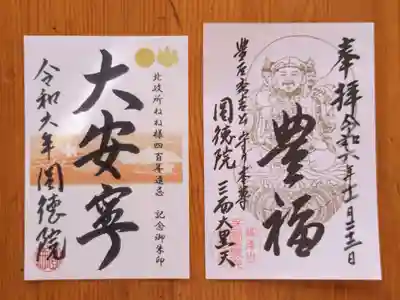 北政所ねね様四百年遠忌　記念御朱印
大安寧
令和六年 圓徳院
奉拝 令和六年十一月二十三日
豊福
三面大黒天
豊臣秀吉公 守り本尊
圓徳院